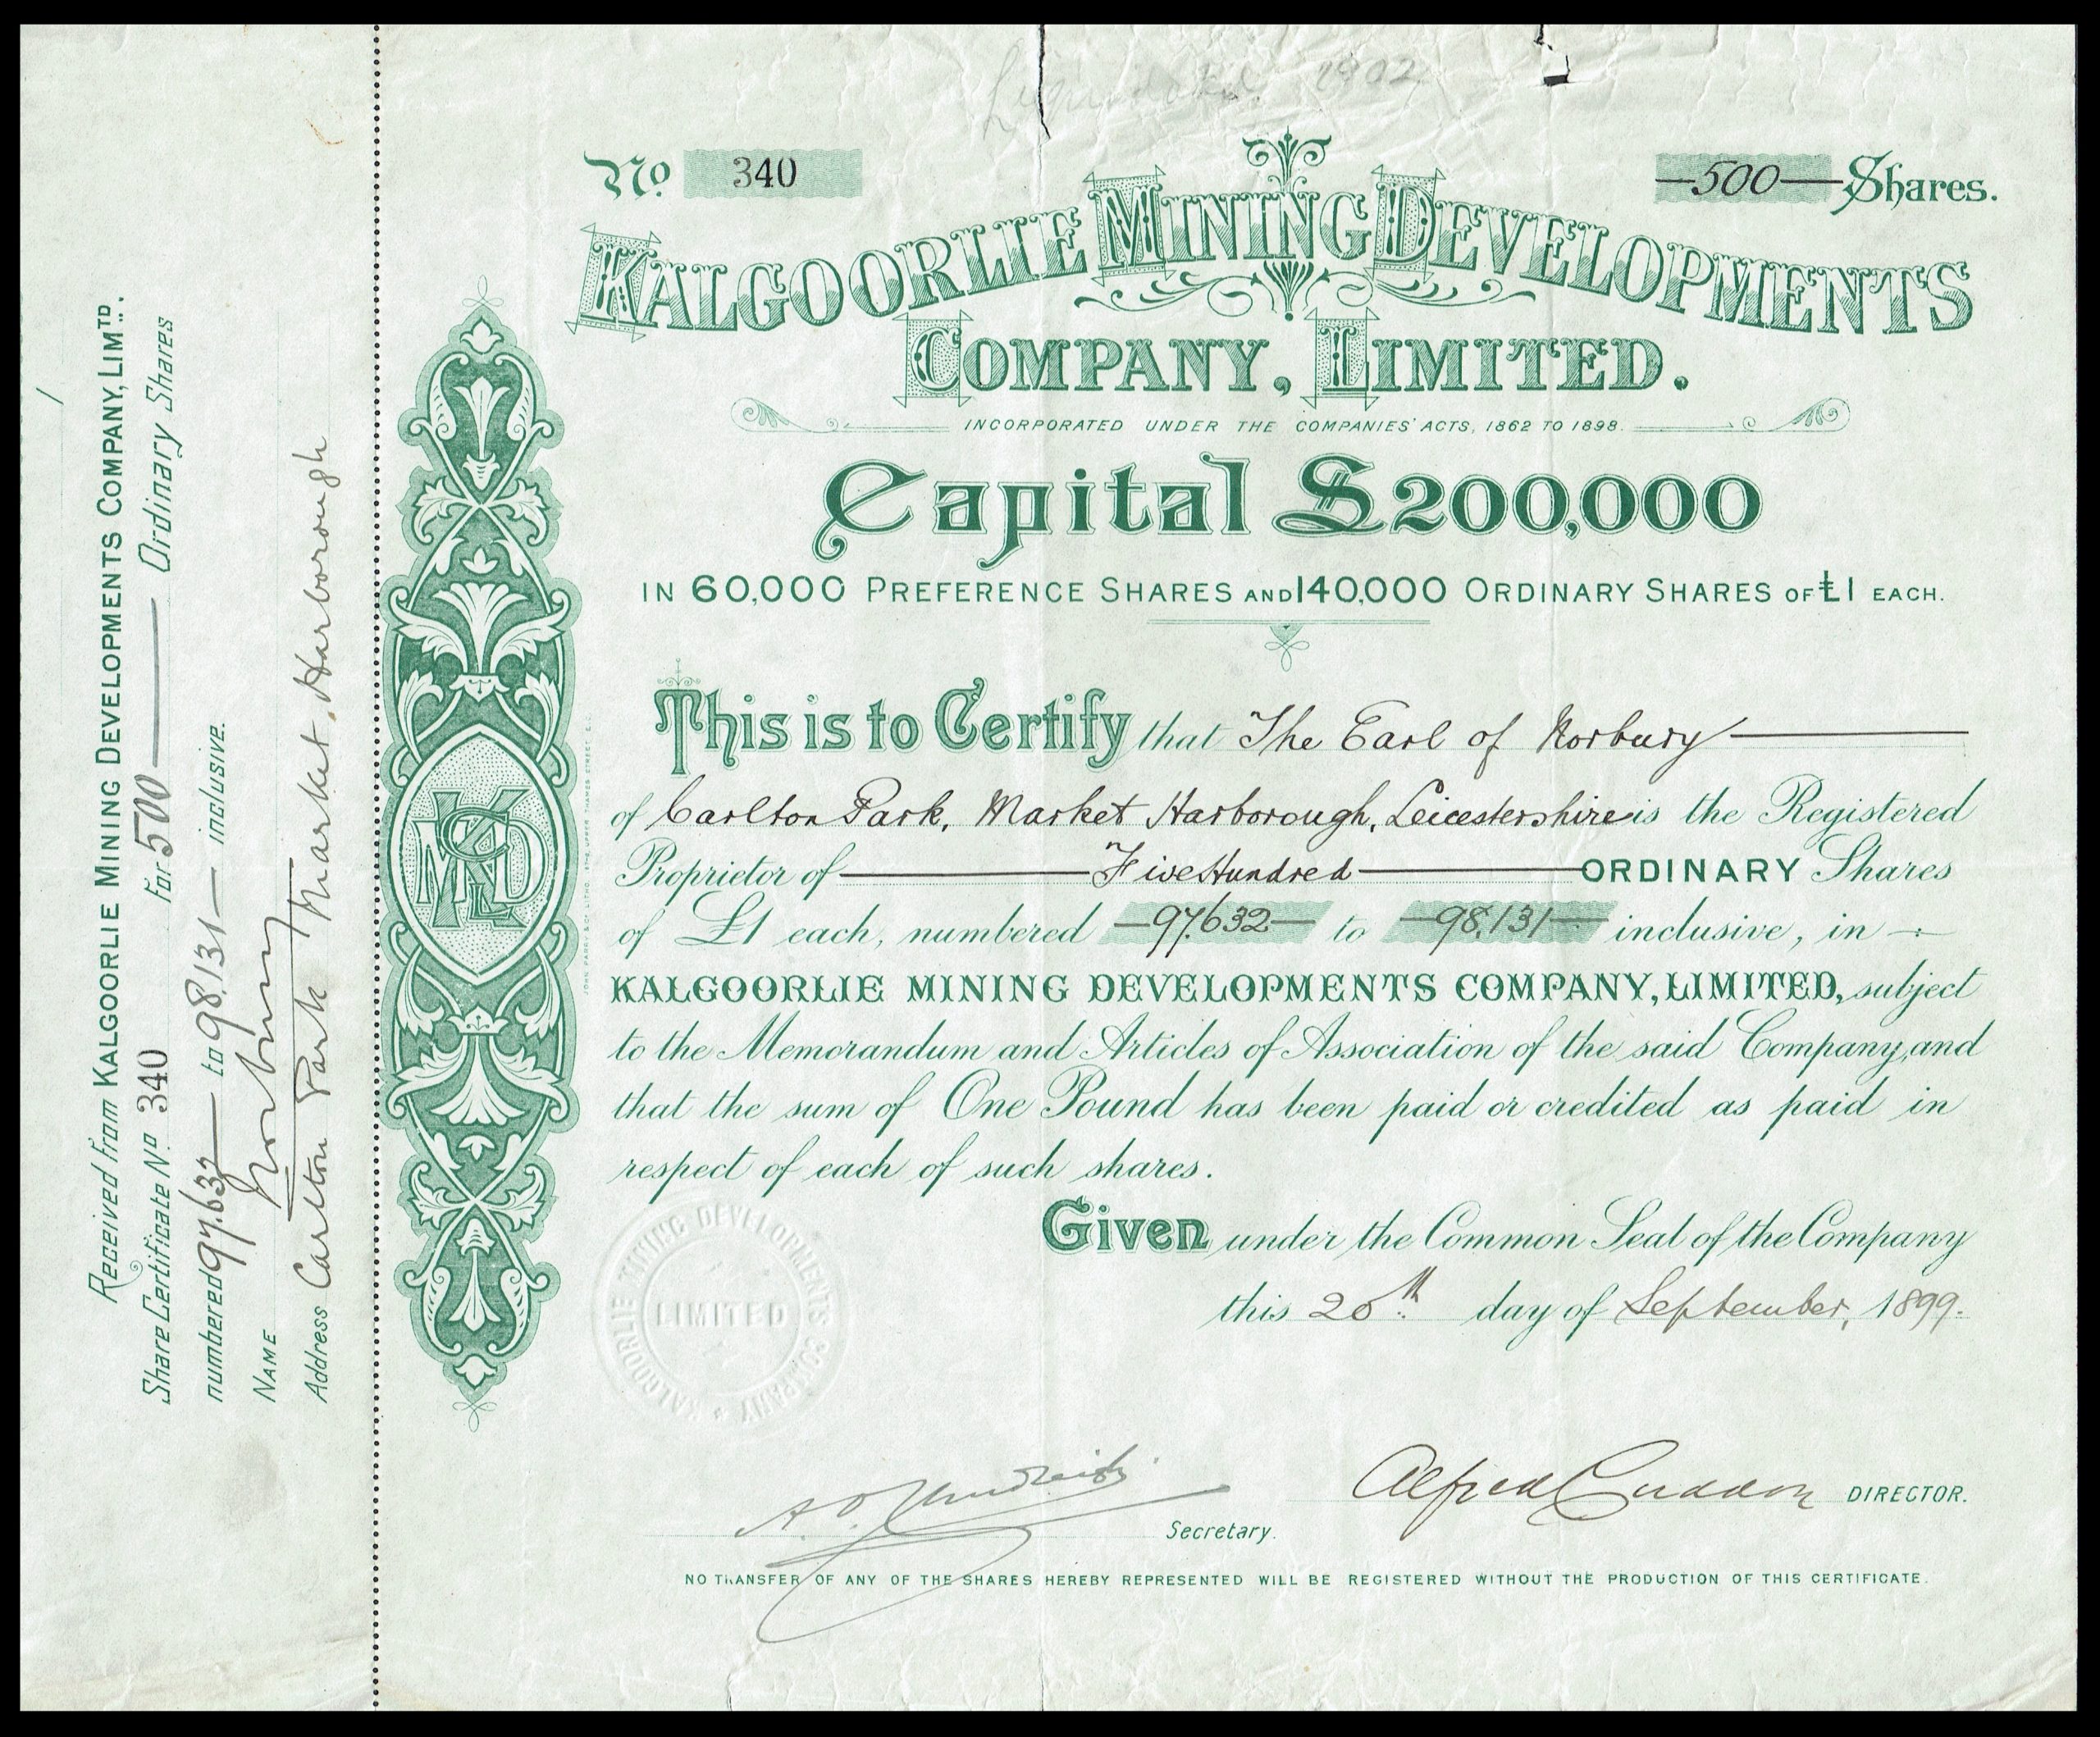 Liquidated. 1902
No. 340
—500— Shares.
KALGOORLIE MINING DEVELOPMENTS
COMPANY, LIMITED.
INCORPORATED UNDER THE COMPANIES' ACTS, 1862 TO 1898.
Capital £200,000
IN 60,000 PREFERENCE SHARES AND 140,000 ORDINARY SHARES OF £1 EACH.
This is to Certify that The Earl of Norbury
of Carlton Park, Market Harborough, Leicestershire is the Registered
Proprietor of — Five Hundred — ORDINARY Shares
of £1 each, numbered —97,632— to —98,131— inclusive, in
KALGOORLIE MINING DEVELOPMENTS COMPANY, LIMITED, subject
to the Memorandum and Articles of Association of the said Company, and
that the sum of One Pound has been paid or credited as paid in
respect of each of such shares.
Given under the Common Seal of the Company
this 20th day of September, 1899.
KALGOORLIE MINING DEVELOPMENTS COMPANY
LIMITED
Alfred Cuddon DIRECTOR.
Secretary.
NO TRANSFER OF ANY OF THE SHARES HEREBY REPRESENTED WILL BE REGISTERED WITHOUT THE PRODUCTION OF THIS CERTIFICATE.
Received from KALGOORLIE MINING DEVELOPMENTS COMPANY, LIMTD.
Share Certificate No. 340 for 500 — Ordinary Shares
numbered 97,632 — to 98,131 — inclusive.
NAME Norbury
Address Carlton Park Market Harborough